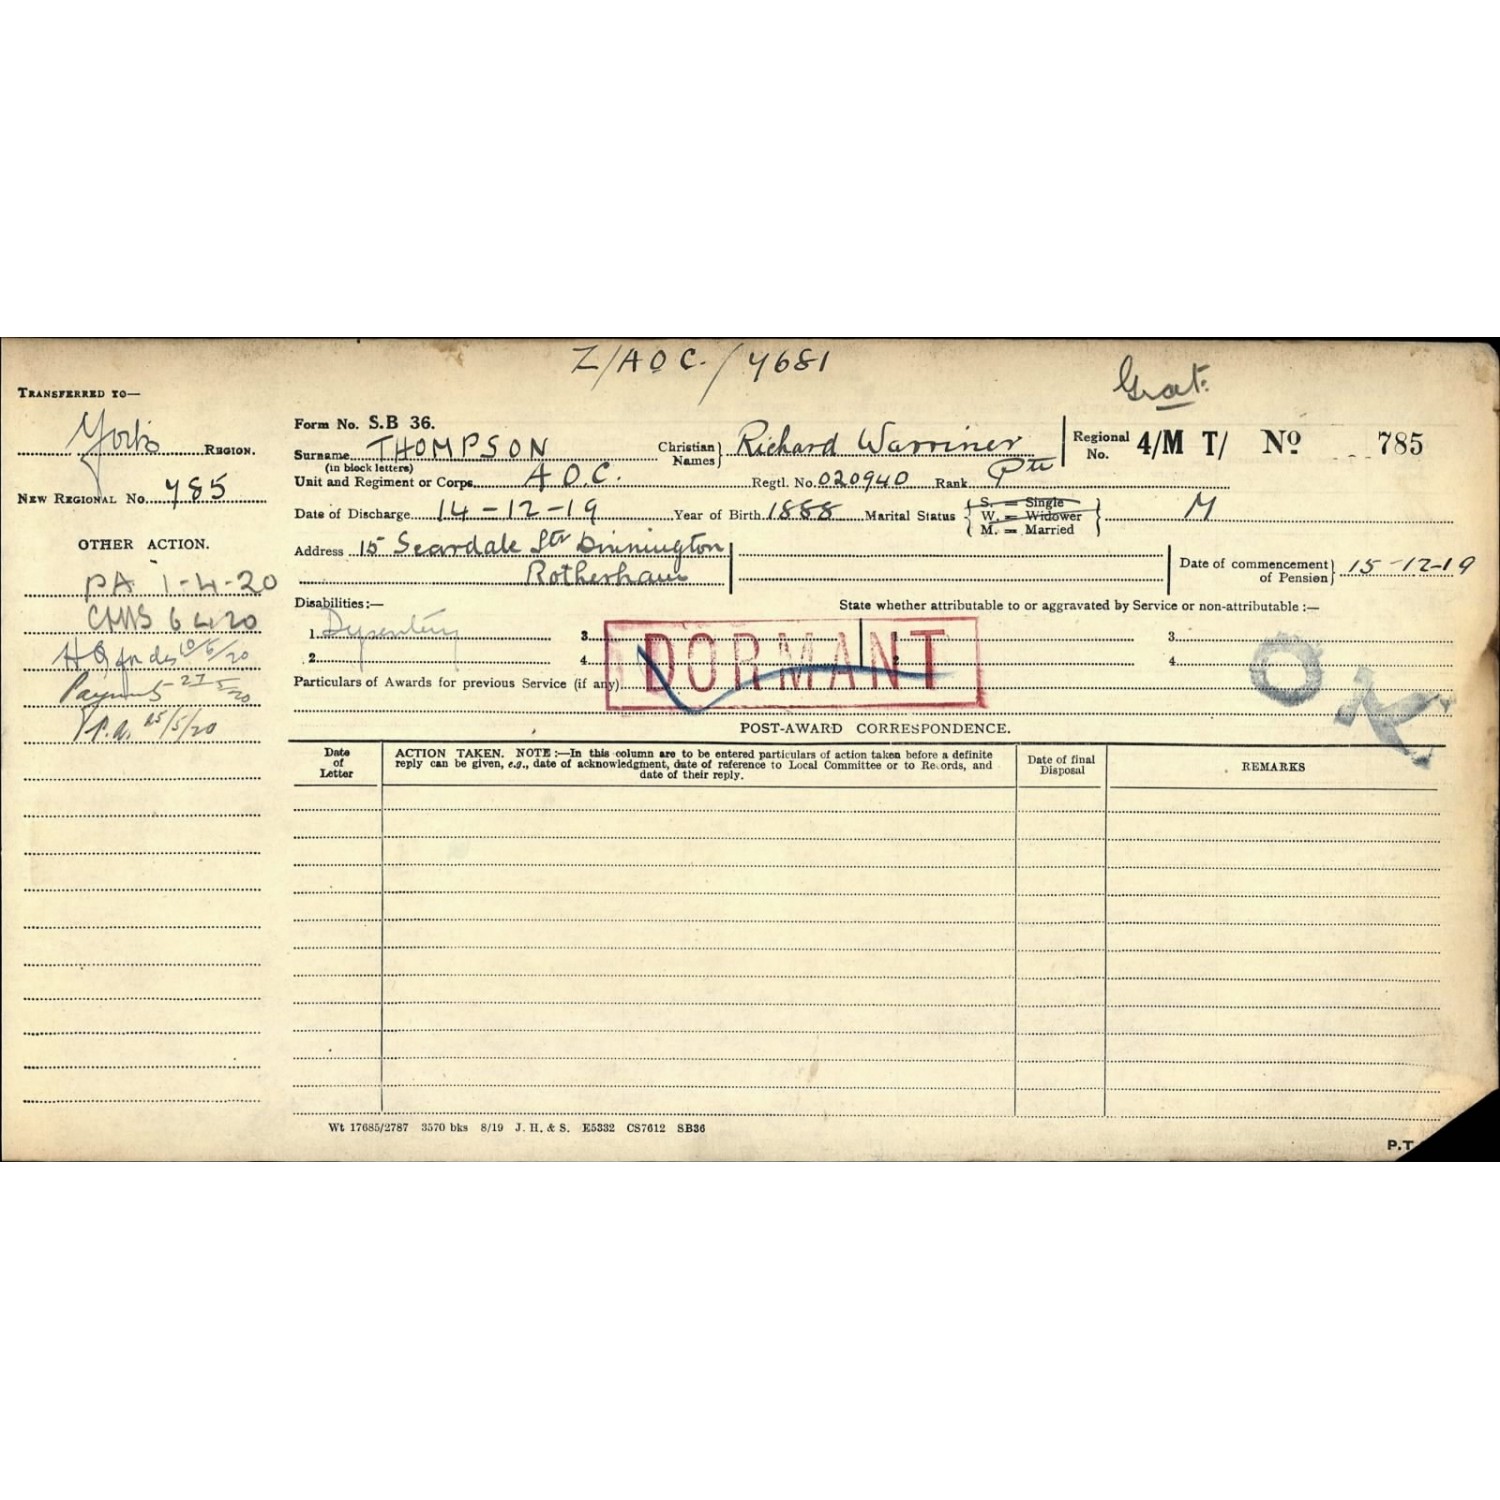 Z/AOC./7681
Grat.
TRANSFERRED TO—
Yorks REGION.
NEW REGIONAL No. 785
OTHER ACTION.
PA 1-4-20
6 4 20
Payments 27/5/20
P.A. 25/5/20
Form No. S.B 36.
Surname THOMPSON Christian Names Richard Warriner Regional No. 4/M T/ No 785
(in block letters)
Unit and Regiment or Corps A.O.C. Regtl. No. 020940 Rank Pte
Date of Discharge 14-12-19 Year of Birth 1888 Marital Status S. = Single W. = Widower M. = Married M
Address 15 Scardale Str Dinnington
Rotherham
Date of commencement of Pension 15-12-19
Disabilities:— State whether attributable to or aggravated by Service or non-attributable :—
1. Dysentery 3. 3.
2. 4. 2 4.
DORMANT
OK
Particulars of Awards for previous Service (if any)
POST-AWARD CORRESPONDENCE.
Date of Letter
ACTION TAKEN. NOTE :—In this column are to be entered particulars of action taken before a definite
reply can be given, e.g., date of acknowledgment, date of reference to Local Committee or to Records, and
date of their reply.
Date of final Disposal
REMARKS
Wt 17685/2787 3570 bks 8/19 J. H. & S. E5332 CS7612 SB36
P.T.